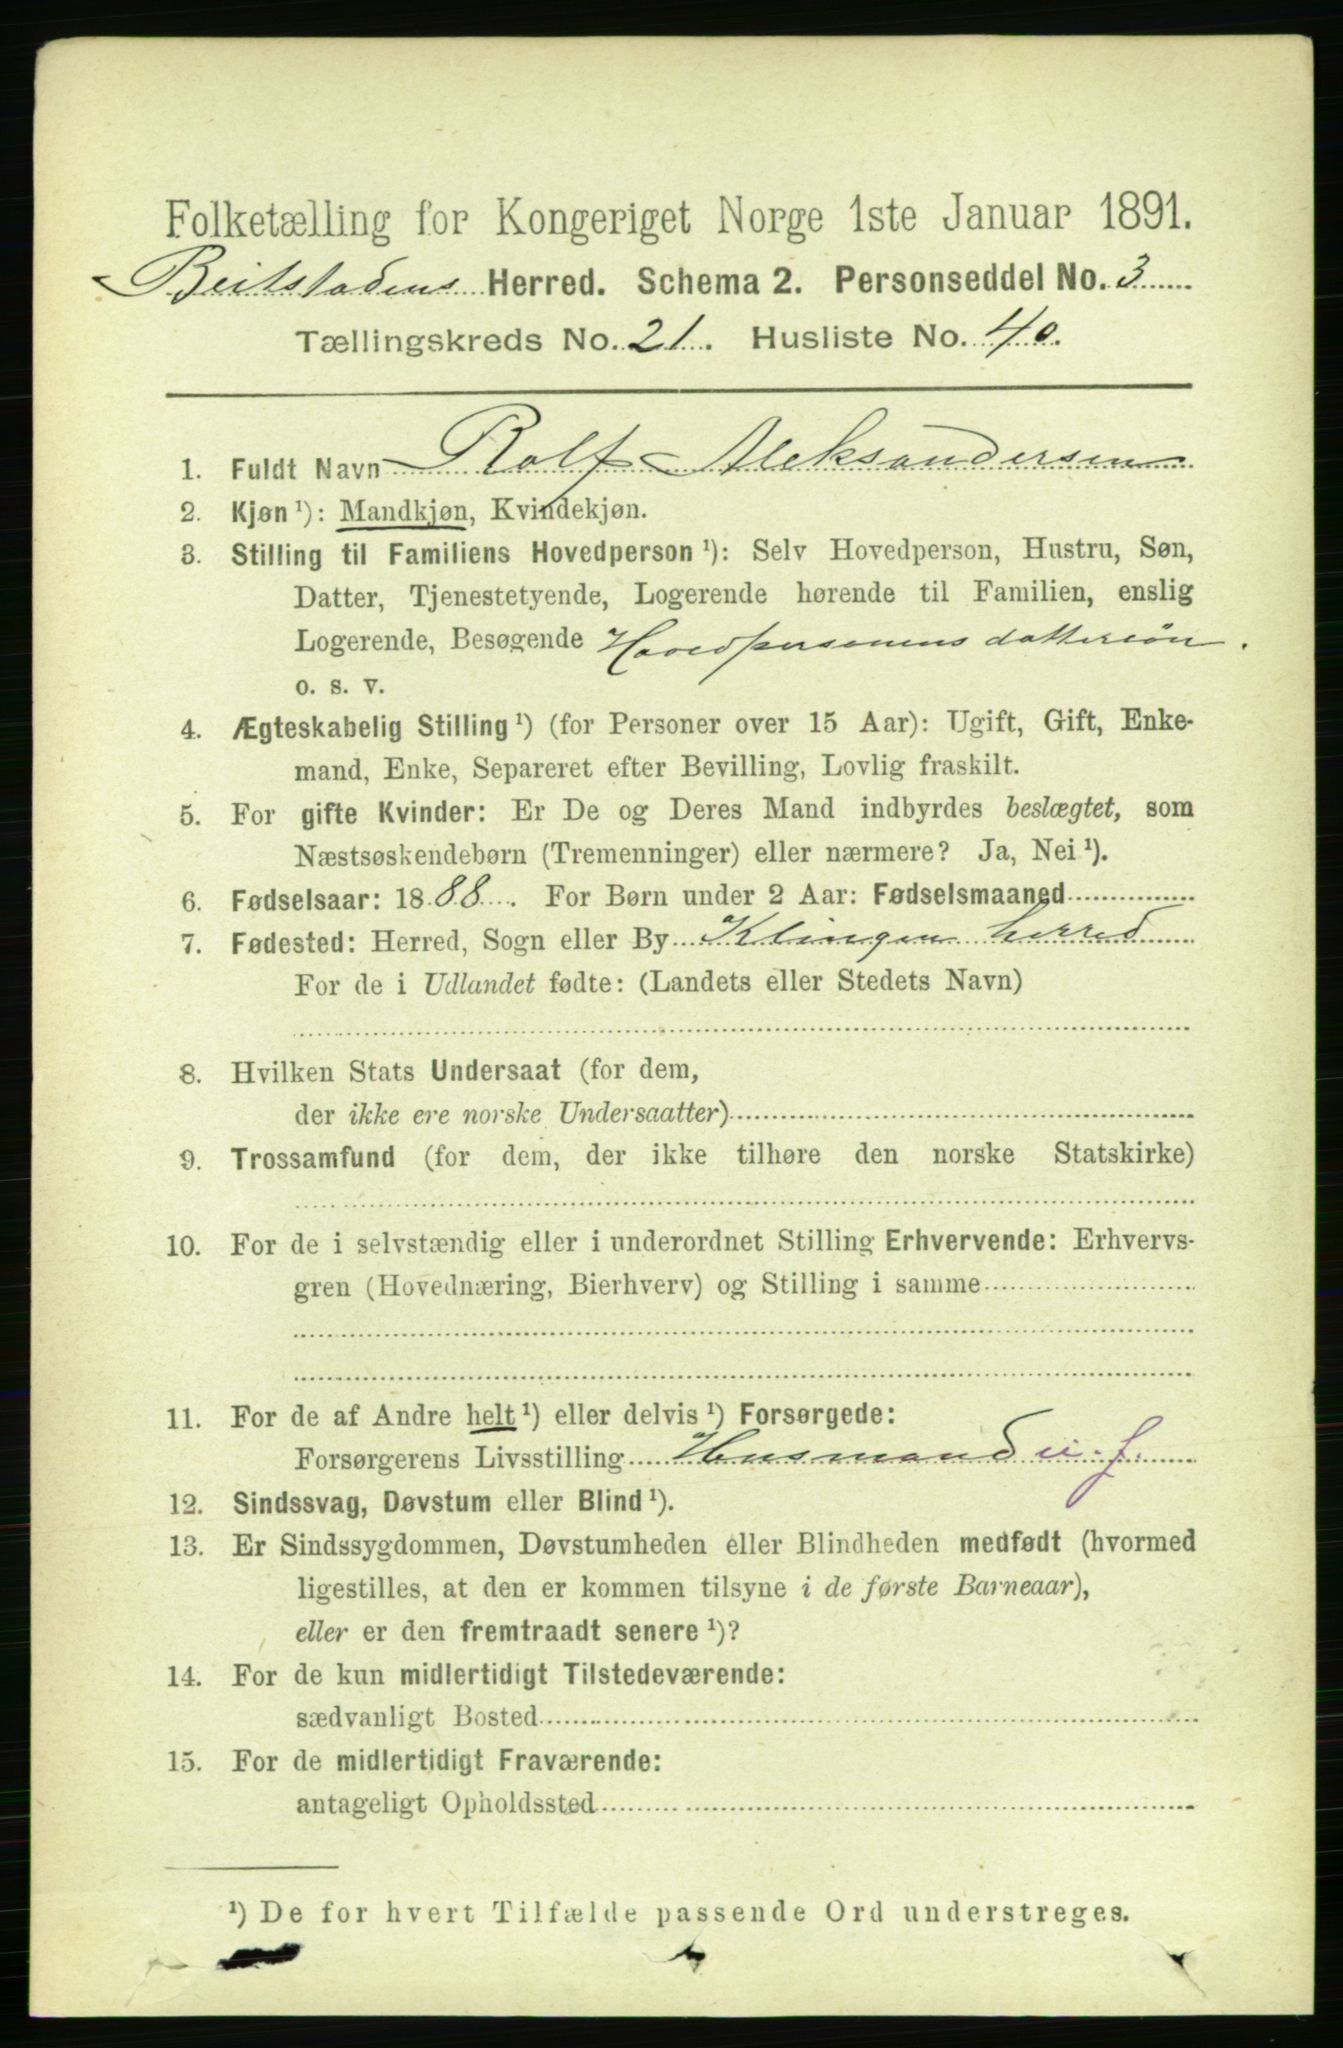 Folketælling for Kongeriget Norge 1ste Januar 1891.
Beitstadens Herred. Schema 2. Personseddel No. 3
Tællingskreds No. 21. Husliste No. 40.
1. Fuldt Navn Rolf Aleksandersen
2. Kjøn ¹): Mandkjøn, Kvindekjøn.
3. Stilling til Familiens Hovedperson ¹): Selv Hovedperson, Hustru, Søn,
Datter, Tjenestetyende, Logerende hørende til Familien, enslig
Logerende, Besøgende Hovedpersonens dattersøn.
o. s. v.
4. Ægteskabelig Stilling ¹) (for Personer over 15 Aar): Ugift, Gift, Enke-
mand, Enke, Separeret efter Bevilling, Lovlig fraskilt.
5. For gifte Kvinder: Er De og Deres Mand indbyrdes beslægtet, som
Næstsøskendebørn (Tremenninger) eller nærmere? Ja, Nei ¹).
6. Fødselsaar: 1888. For Børn under 2 Aar: Fødselsmaaned
7. Fødested: Herred, Sogn eller By Klingen herred
For de i Udlandet fødte: (Landets eller Stedets Navn)
8. Hvilken Stats Undersaat (for dem,
der ikke ere norske Undersaatter)
9. Trossamfund (for dem, der ikke tilhøre den norske Statskirke)
10. For de i selvstændig eller i underordnet Stilling Erhvervende: Erhvervs-
gren (Hovednæring, Bierhverv) og Stilling i samme
11. For de af Andre helt ¹) eller delvis ¹) Forsørgede:
Forsørgerens Livsstilling Husmand u. j.
12. Sindssvag, Døvstum eller Blind ¹).
13. Er Sindssygdommen, Døvstumheden eller Blindheden medfødt (hvormed
ligestilles, at den er kommen tilsyne i de første Barneaar),
eller er den fremtraadt senere ¹)?
14. For de kun midlertidigt Tilstedeværende:
sædvanligt Bosted
15. For de midlertidigt Fraværende:
antageligt Opholdssted
¹) De for hvert Tilfælde passende Ord understreges.